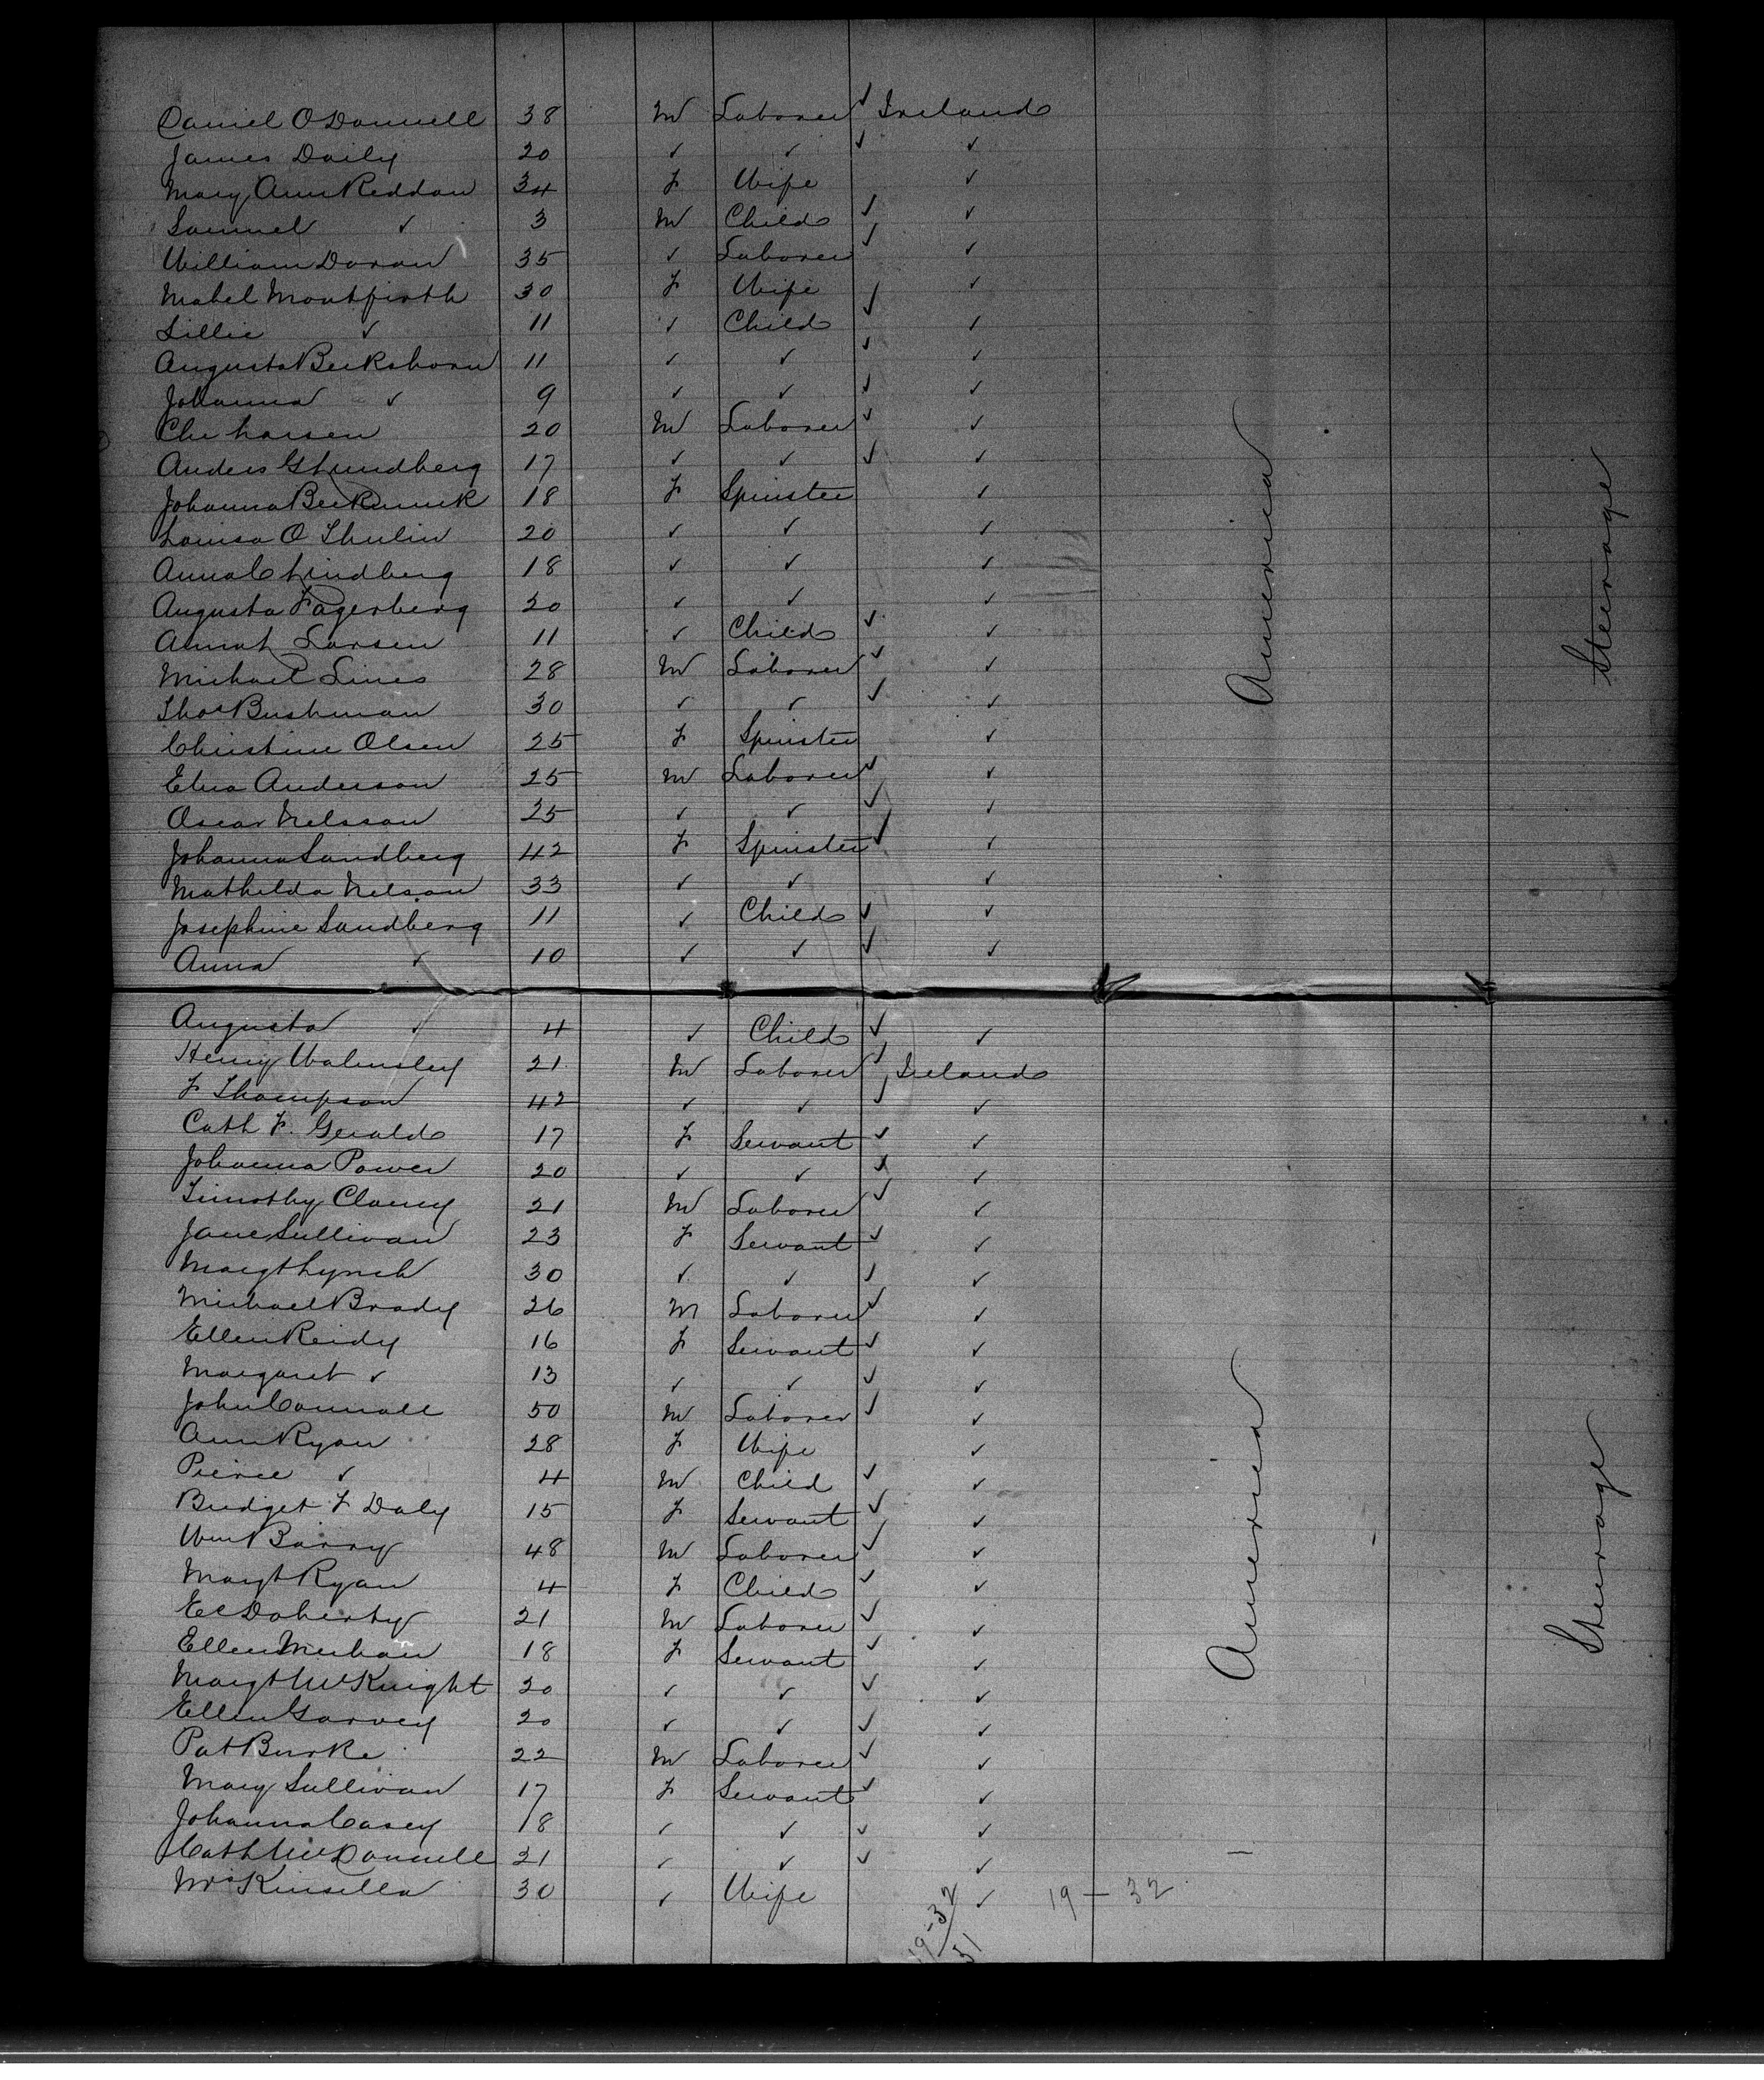 Daniel O Donnell 38 M Laborer ✓ Ireland
James Daily 20 ✓ ✓ ✓ ✓
Mary Ann Reddan 34 F Wife ✓
Samuel ✓ 3 M Child ✓ ✓
William Doran 35 ✓ Laborer ✓ ✓
Mabel Montfirth 30 F Wife ✓
Lillie ✓ 11 ✓ Child ✓ ✓
Augusta Beckshorn 11 ✓ ✓ ✓ ✓
Johanna ✓ 9 ✓ ✓ ✓ ✓
Chr Larsen 20 M Laborer ✓ ✓
Anders G Lundberg 17 ✓ ✓ ✓ ✓
Johanna 18 F Spinster ✓
Louisa O Thulin 20 ✓ ✓ ✓
Anna C Lindberg 18 ✓ ✓ ✓
Augusta Fagerberg 20 ✓ ✓ ✓
Larsen 11 ✓ Child ✓ ✓
Michael Lines 28 M Laborer ✓ ✓
Thos Bushman 30 ✓ ✓ ✓ ✓
Christine Olsen 25 F Spinster ✓
Elna Anderson 25 M Laborer ✓ ✓
Oscar Nelsson 25 ✓ ✓ ✓ ✓
Johanna Sandberg 42 F Spinster ✓ ✓
Mathilda Nelson 33 ✓ ✓ ✓
Josephine Sandberg 11 ✓ Child ✓ ✓
Anna ✓ 10 ✓ ✓ ✓ ✓
America
Steerage
Augusta ✓ 4 ✓ Child ✓ ✓
Henry Walmsley 21 M Laborer ✓ Ireland
F Thompson 42 ✓ ✓ ✓ ✓
Cath F. Gerald 17 F Servant ✓ ✓
Johanna Power 20 ✓ ✓ ✓ ✓
Timothy Clancy 21 M Laborer ✓ ✓
Jane Sullivan 23 F Servant ✓ ✓
Margt Lynch 30 ✓ ✓ ✓ ✓
Michael Brady 26 M Laborer ✓ ✓
Ellen Reidy 16 F Servant ✓ ✓
Margaret ✓ 13 ✓ ✓ ✓ ✓
John Connole 50 M Laborer ✓ ✓
Ann Ryan 28 F Wife ✓
Pierce ✓ 4 M Child ✓ ✓
Bridget F Daly 15 F Servant ✓ ✓
Wm Barry 48 M Laborer ✓ ✓
Margt Ryan 4 F Child ✓ ✓
Ed Doherty 21 M Laborer ✓ ✓
Ellen Meehan 18 F Servant ✓ ✓
Margt McKnight 20 ✓ ✓ ✓ ✓
Ellen Garvey 20 ✓ ✓ ✓ ✓
Pat Burke 22 M Laborer ✓ ✓
Mary Sullivan 17 F Servant ✓ ✓
Johanna Casey 18 ✓ ✓ ✓ ✓
Cath McDonnell 21 ✓ ✓ ✓ ✓
Mrs Kinsella 30 ✓ Wife ✓ 19 — 32
19-32
51
America
Steerage